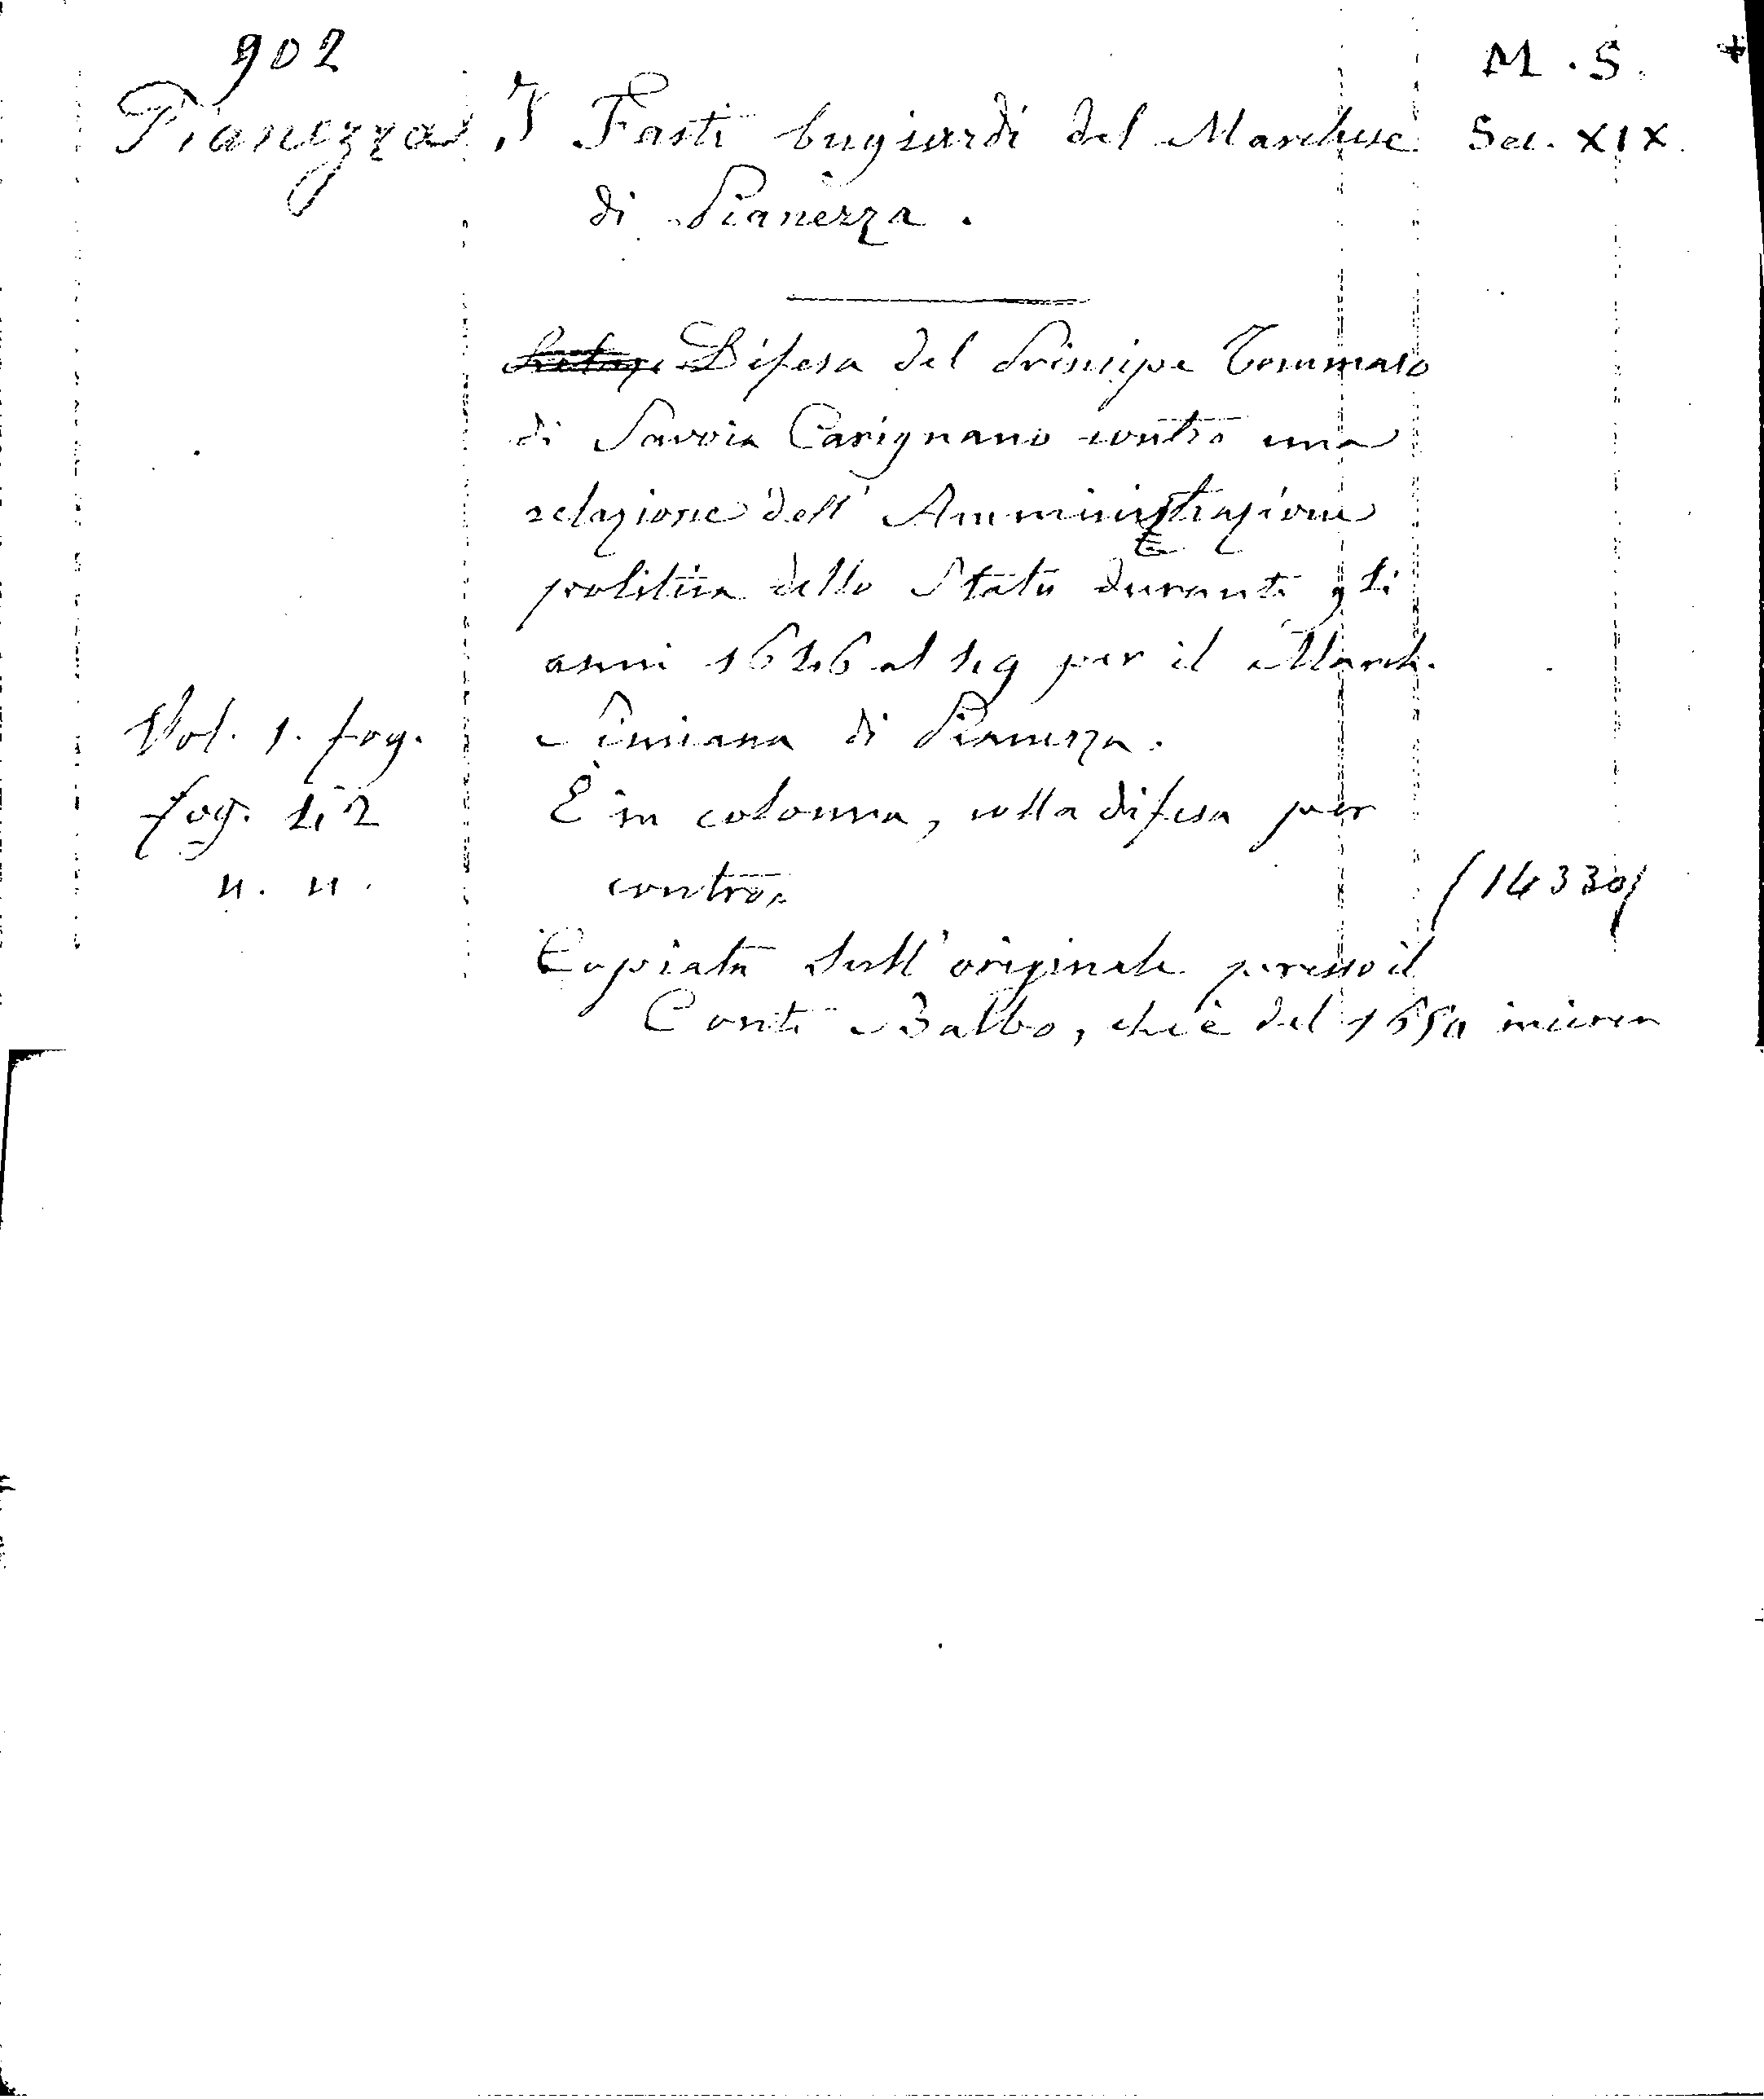 902
M. S. +
Pianezza I Fasti bugiardi del Marchese Sec. XIX.
di Pianezza.
Relaze Difesa del Principe Tommaso
di Savoia Carignano contro una
relazione dell'Amministrazione
politica dello Stato durante gli
anni 1646 al 49 per il March.
Vol. 1. fog. Simiana di Pianezza.
fog. 42 È in colonna, colla difesa per
n. n. contro. (14330)
Copiata dall'originale presso il
Conte Balbo, ch'è del 1650 incirca